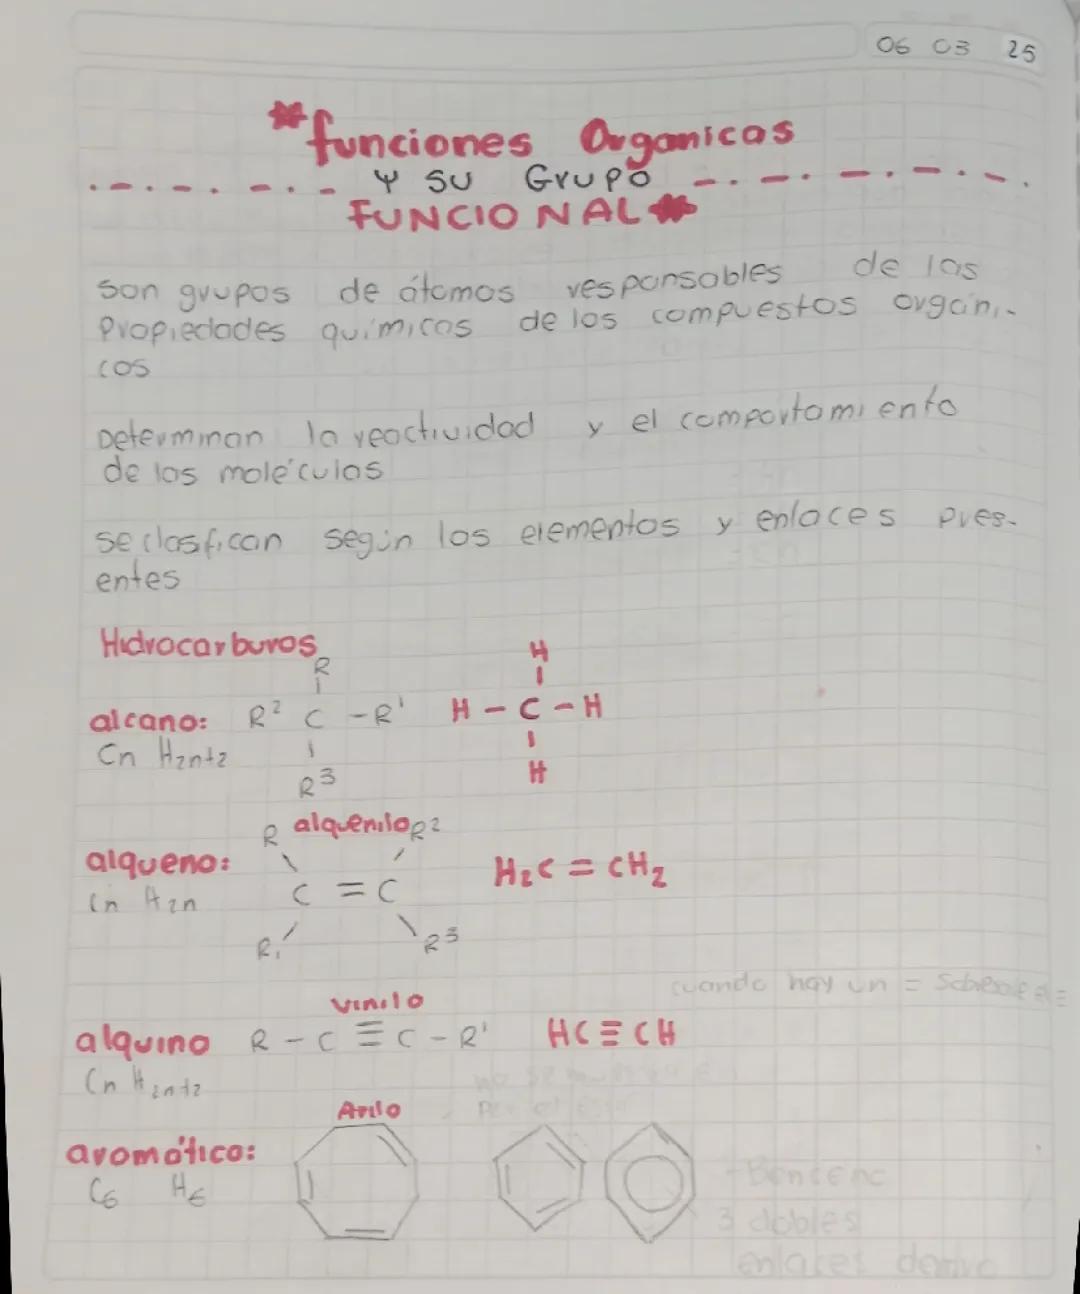 06 03 25
*funciones Organicas
Y SU GrUPO
FUNCIONAL*
son grupos de átomos responsables de las
Propiedades químicas de los compuestos orgáni-
cos
Determinan la reactividad y el comportamiento
de las moléculas
se clasfican según los elementos y enlaces pres-
entes
Hidrocarburos
R
H
alcano: R² C -R' H - C - H
Cn H2n+2
R³
H
R alquenilo R²
alqueno:
C = C H₂C = CH₂
Cn H2n
R' R³
cuando hay un =
vinilo
alquino R - C ≡ C - R' HC ≡ CH
Cn H2n+2
Arilo
aromático:
C6 H6
-Benceno
3 dobles
enlaces